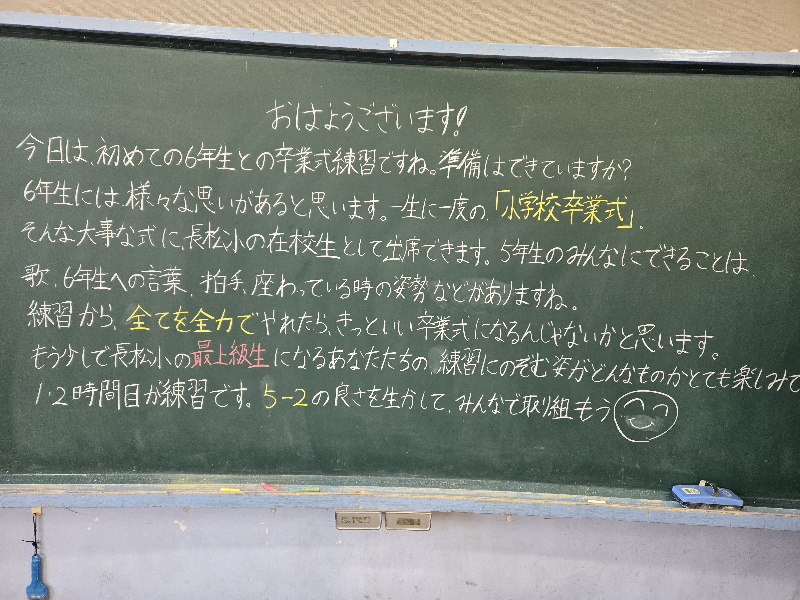 おはようございます!
今日は、初めての6年生との卒業式練習ですね。準備はできていますか?
6年生には、様々な思いがあると思います。一生に一度の、「小学校卒業式」。
そんな大事な式に、長松小の在校生として出席できます。5年生のみんなにできることは、
歌、6年生への言葉、拍手、座わっている時の姿勢などがありますね。
練習から、全てを全力でやれたら、きっといい卒業式になるんじゃないかと思います。
もう少しで長松小の最上級生になるあなたたちの、練習にのぞむ姿がどんなものかとても楽しみで
1・2時間目が練習です。5-2の良さを生かして、みんなで取り組もう